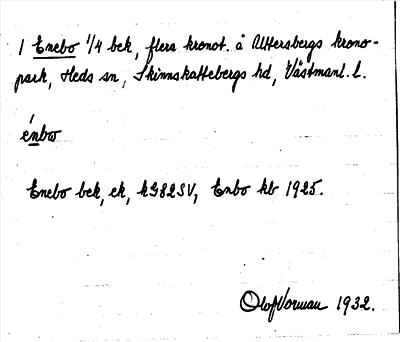 1 Enebo 1/4 bek, flera kronot. å Uttersbergs krono-
park, Heds sn, Skinnskattebergs hd, Västmanl. l.
énbω
Enebo bek, ek, kG82SV, Enbo kb 1925.
Olof Vorman 1932.